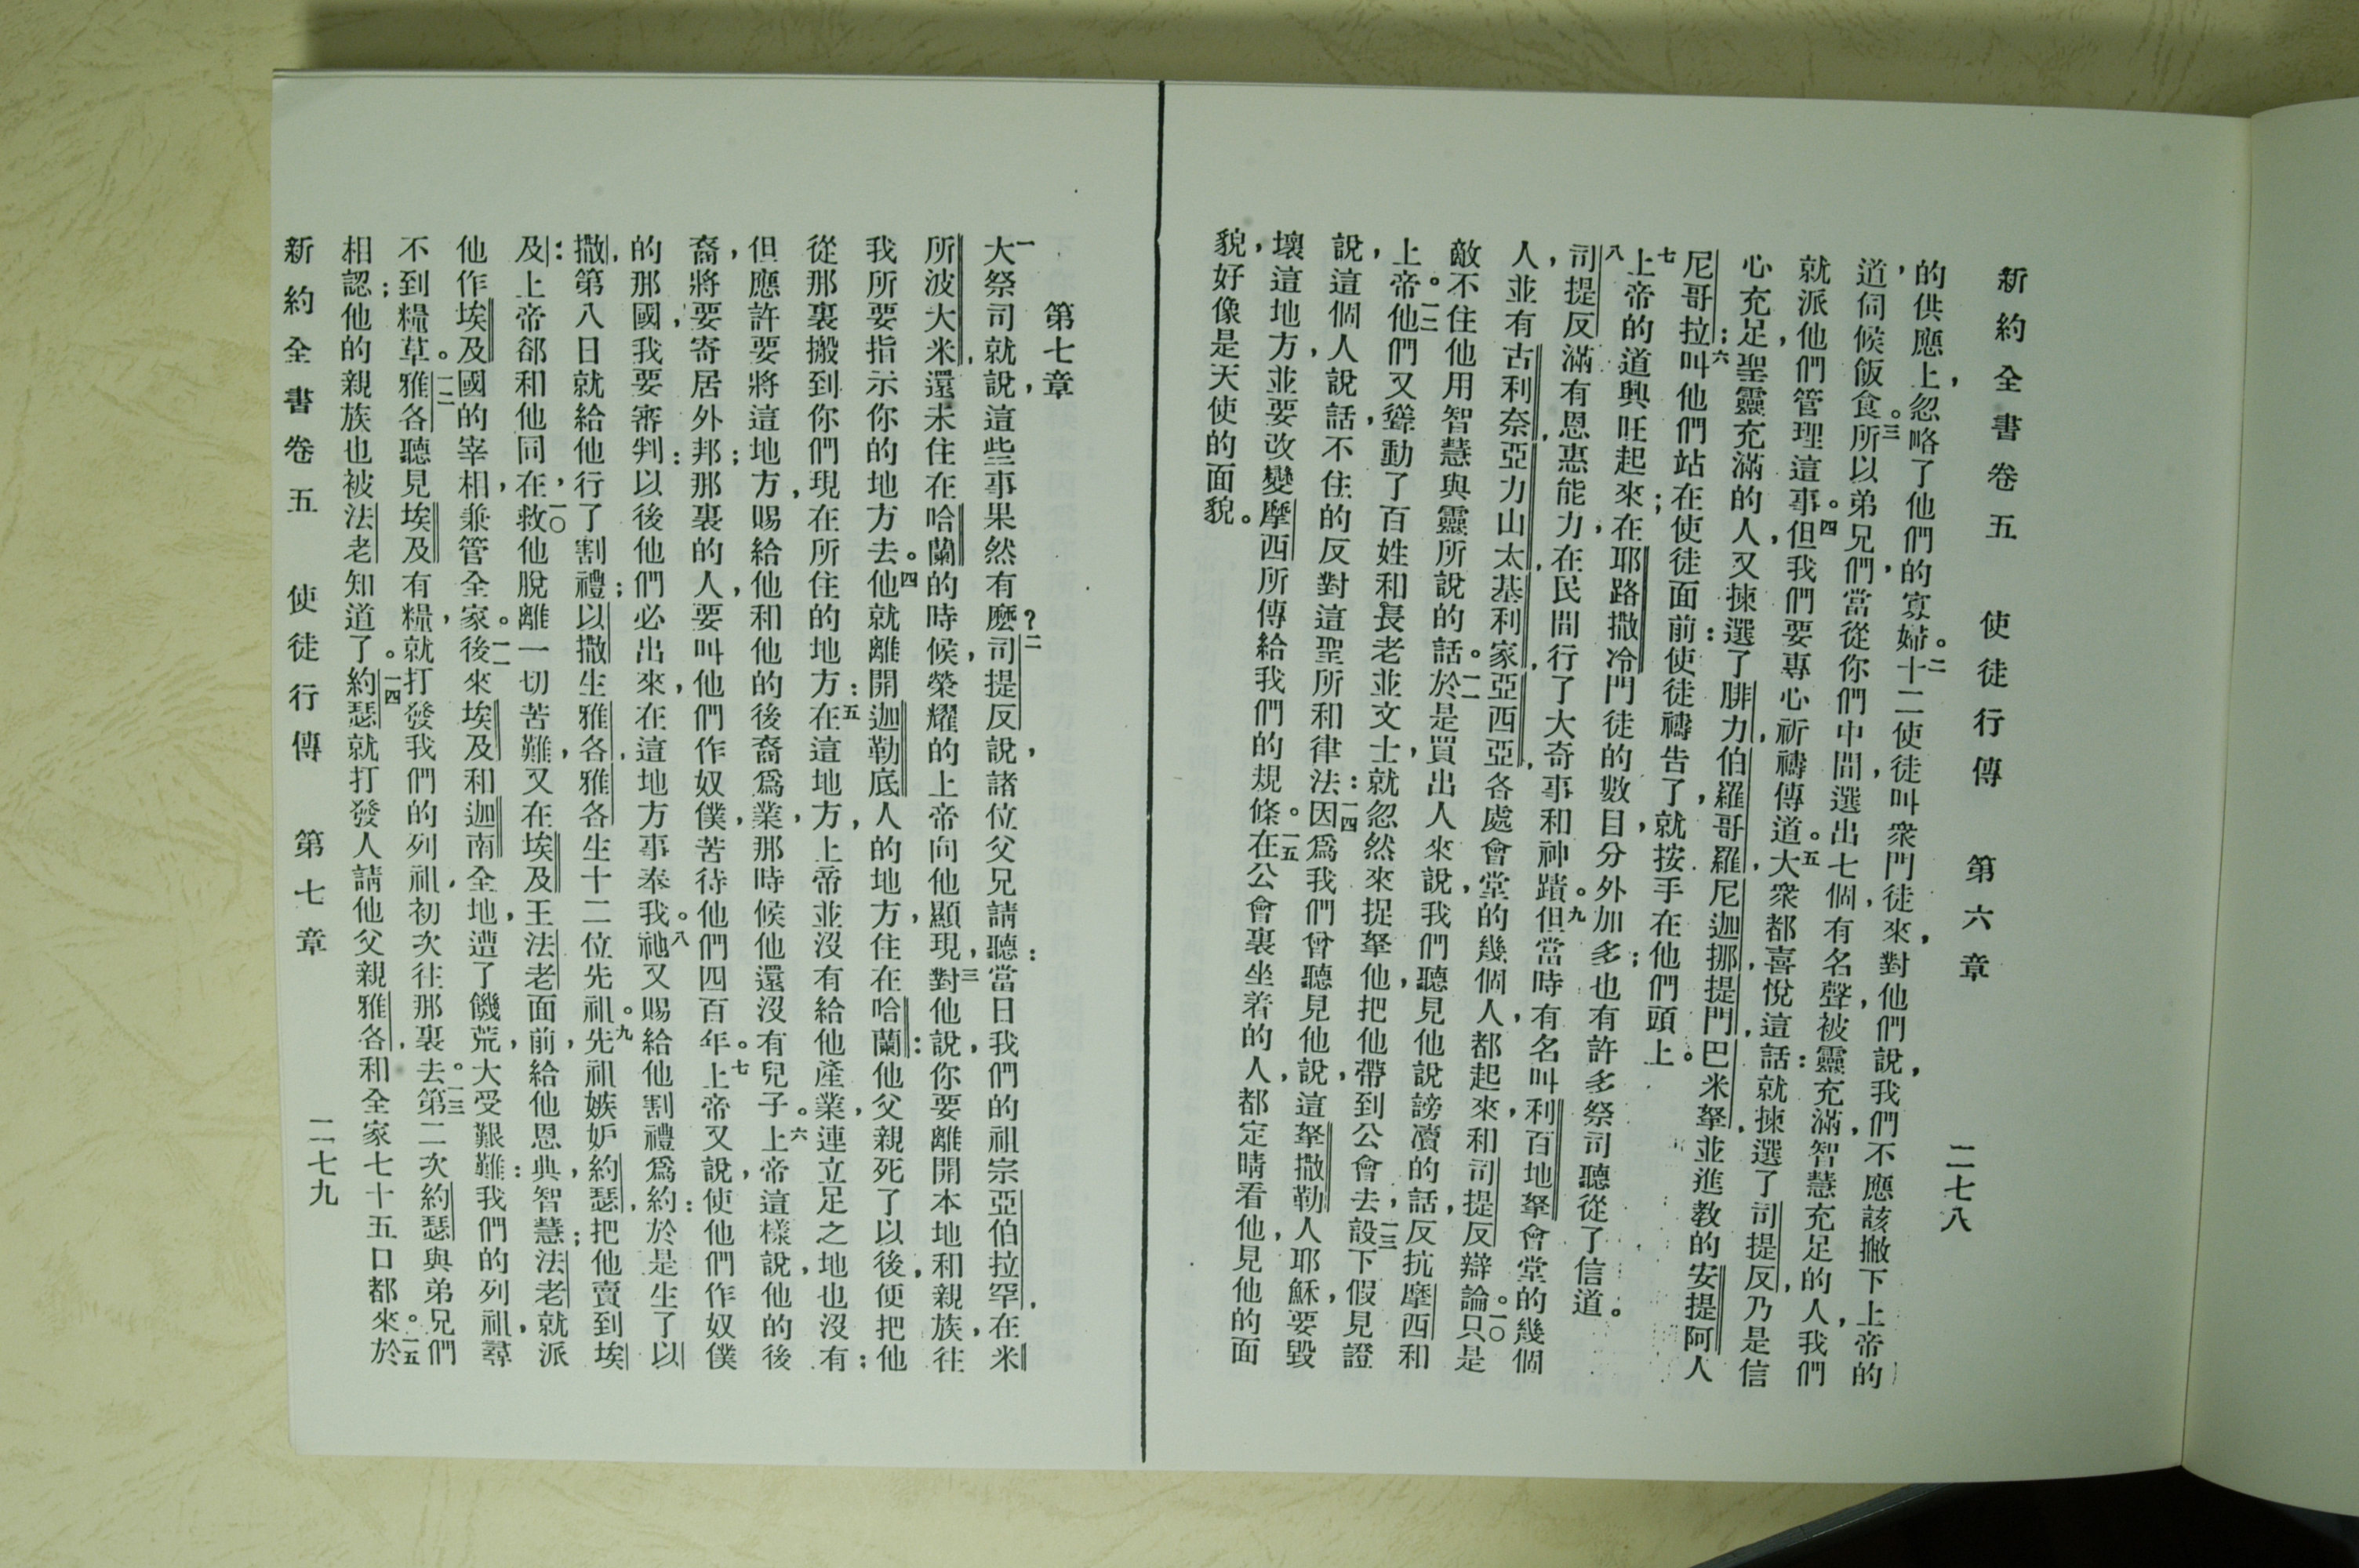 新約全書卷五　使徒行傳　第六章　二七八
的供應上，忽略了他們的寡婦。二十二使徒叫衆門徒來，對他們說，我們不應該撇下上帝的
道，伺候飯食。三所以弟兄們，當從你們中間，選出七個，有名聲，被靈充滿，智慧充足的人，我們
就派他們管理這事。四但我們要專心祈禱傳道。五大衆都喜悅這話：就揀選了司提反，乃是信
心充足，聖靈充滿的人，又揀選了腓力，伯羅哥羅，尼迦挪，提門，巴米拏，並進教的安提阿人
尼哥拉；六叫他們站在使徒面前：使徒禱告了，就按手在他們頭上。
七上帝的道興旺起來；在耶路撒冷門徒的數目，分外加多；也有許多祭司聽從了信道。
八司提反滿有恩惠能力，在民間行了大奇事和神蹟。九但當時有名叫利百地拏會堂的幾個
人，並有古利奈，亞力山太，基利家，亞西亞，各處會堂的幾個人，都起來，和司提反辯論。一〇只是
敵不住他用智慧與靈所說的話。一一於是買出人來說，我們聽見他說謗瀆的話，反抗摩西和
上帝。一二他們又聳動了百姓和長老並文士，就忽然來捉拏他，把他帶到公會去，一三設下假見證
說，這個人說話，不住的反對這聖所和律法：一四因爲我們曾聽見他說，這拏撒勒人耶穌，要毀
壞這地方，並要改變摩西所傳給我們的規條。一五在公會裏坐着的人，都定睛看他，見他的面
貌，好像是天使的面貌。
第七章
一大祭司就說，這些事果然有麽？二司提反說，諸位父兄請聽：當日我們的祖宗亞伯拉罕，在米
所波大米，還未住在哈蘭的時候，榮耀的上帝向他顯現，三對他說，你要離開本地和親族，往
我所要指示你的地方去。四他就離開迦勒底人的地方，住在哈蘭：他父親死了以後，便把他
從那裏搬到你們現在所住的地方：五在這地方，上帝並沒有給他產業，連立足之地也沒有；
但應許要將這地方，賜給他和他的後裔爲業，那時候他還沒有兒子。六上帝這樣說，他的後
裔，將要寄居外邦；那裏的人，要叫他們作奴僕，苦待他們四百年。七上帝又說，使他們作奴僕
的那國，我要審判：以後他們必出來，在這地方事奉我。八祂又賜給他割禮爲約：於是生了以
撒，第八日就給他行了割禮；以撒生雅各，雅各生十二位先祖。九先祖嫉妒約瑟，把他賣到埃
及：上帝郤和他同在，一〇救他脫離一切苦難，又在埃及王法老面前，給他恩典，智慧；法老就派
他作埃及國的宰相，兼管全家。一一後來埃及和迦南全地，遭了饑荒，大受艱難：我們的列祖，尋
不到糧草。一二雅各聽見埃及有糧，就打發我們的列祖，初次往那裏去。一三第二次約瑟與弟兄們
相認；他的親族也被法老知道了。一四約瑟就打發人請他父親雅各，和全家七十五口都來。一五於
新約全書卷五　使徒行傳　第七章　二七九